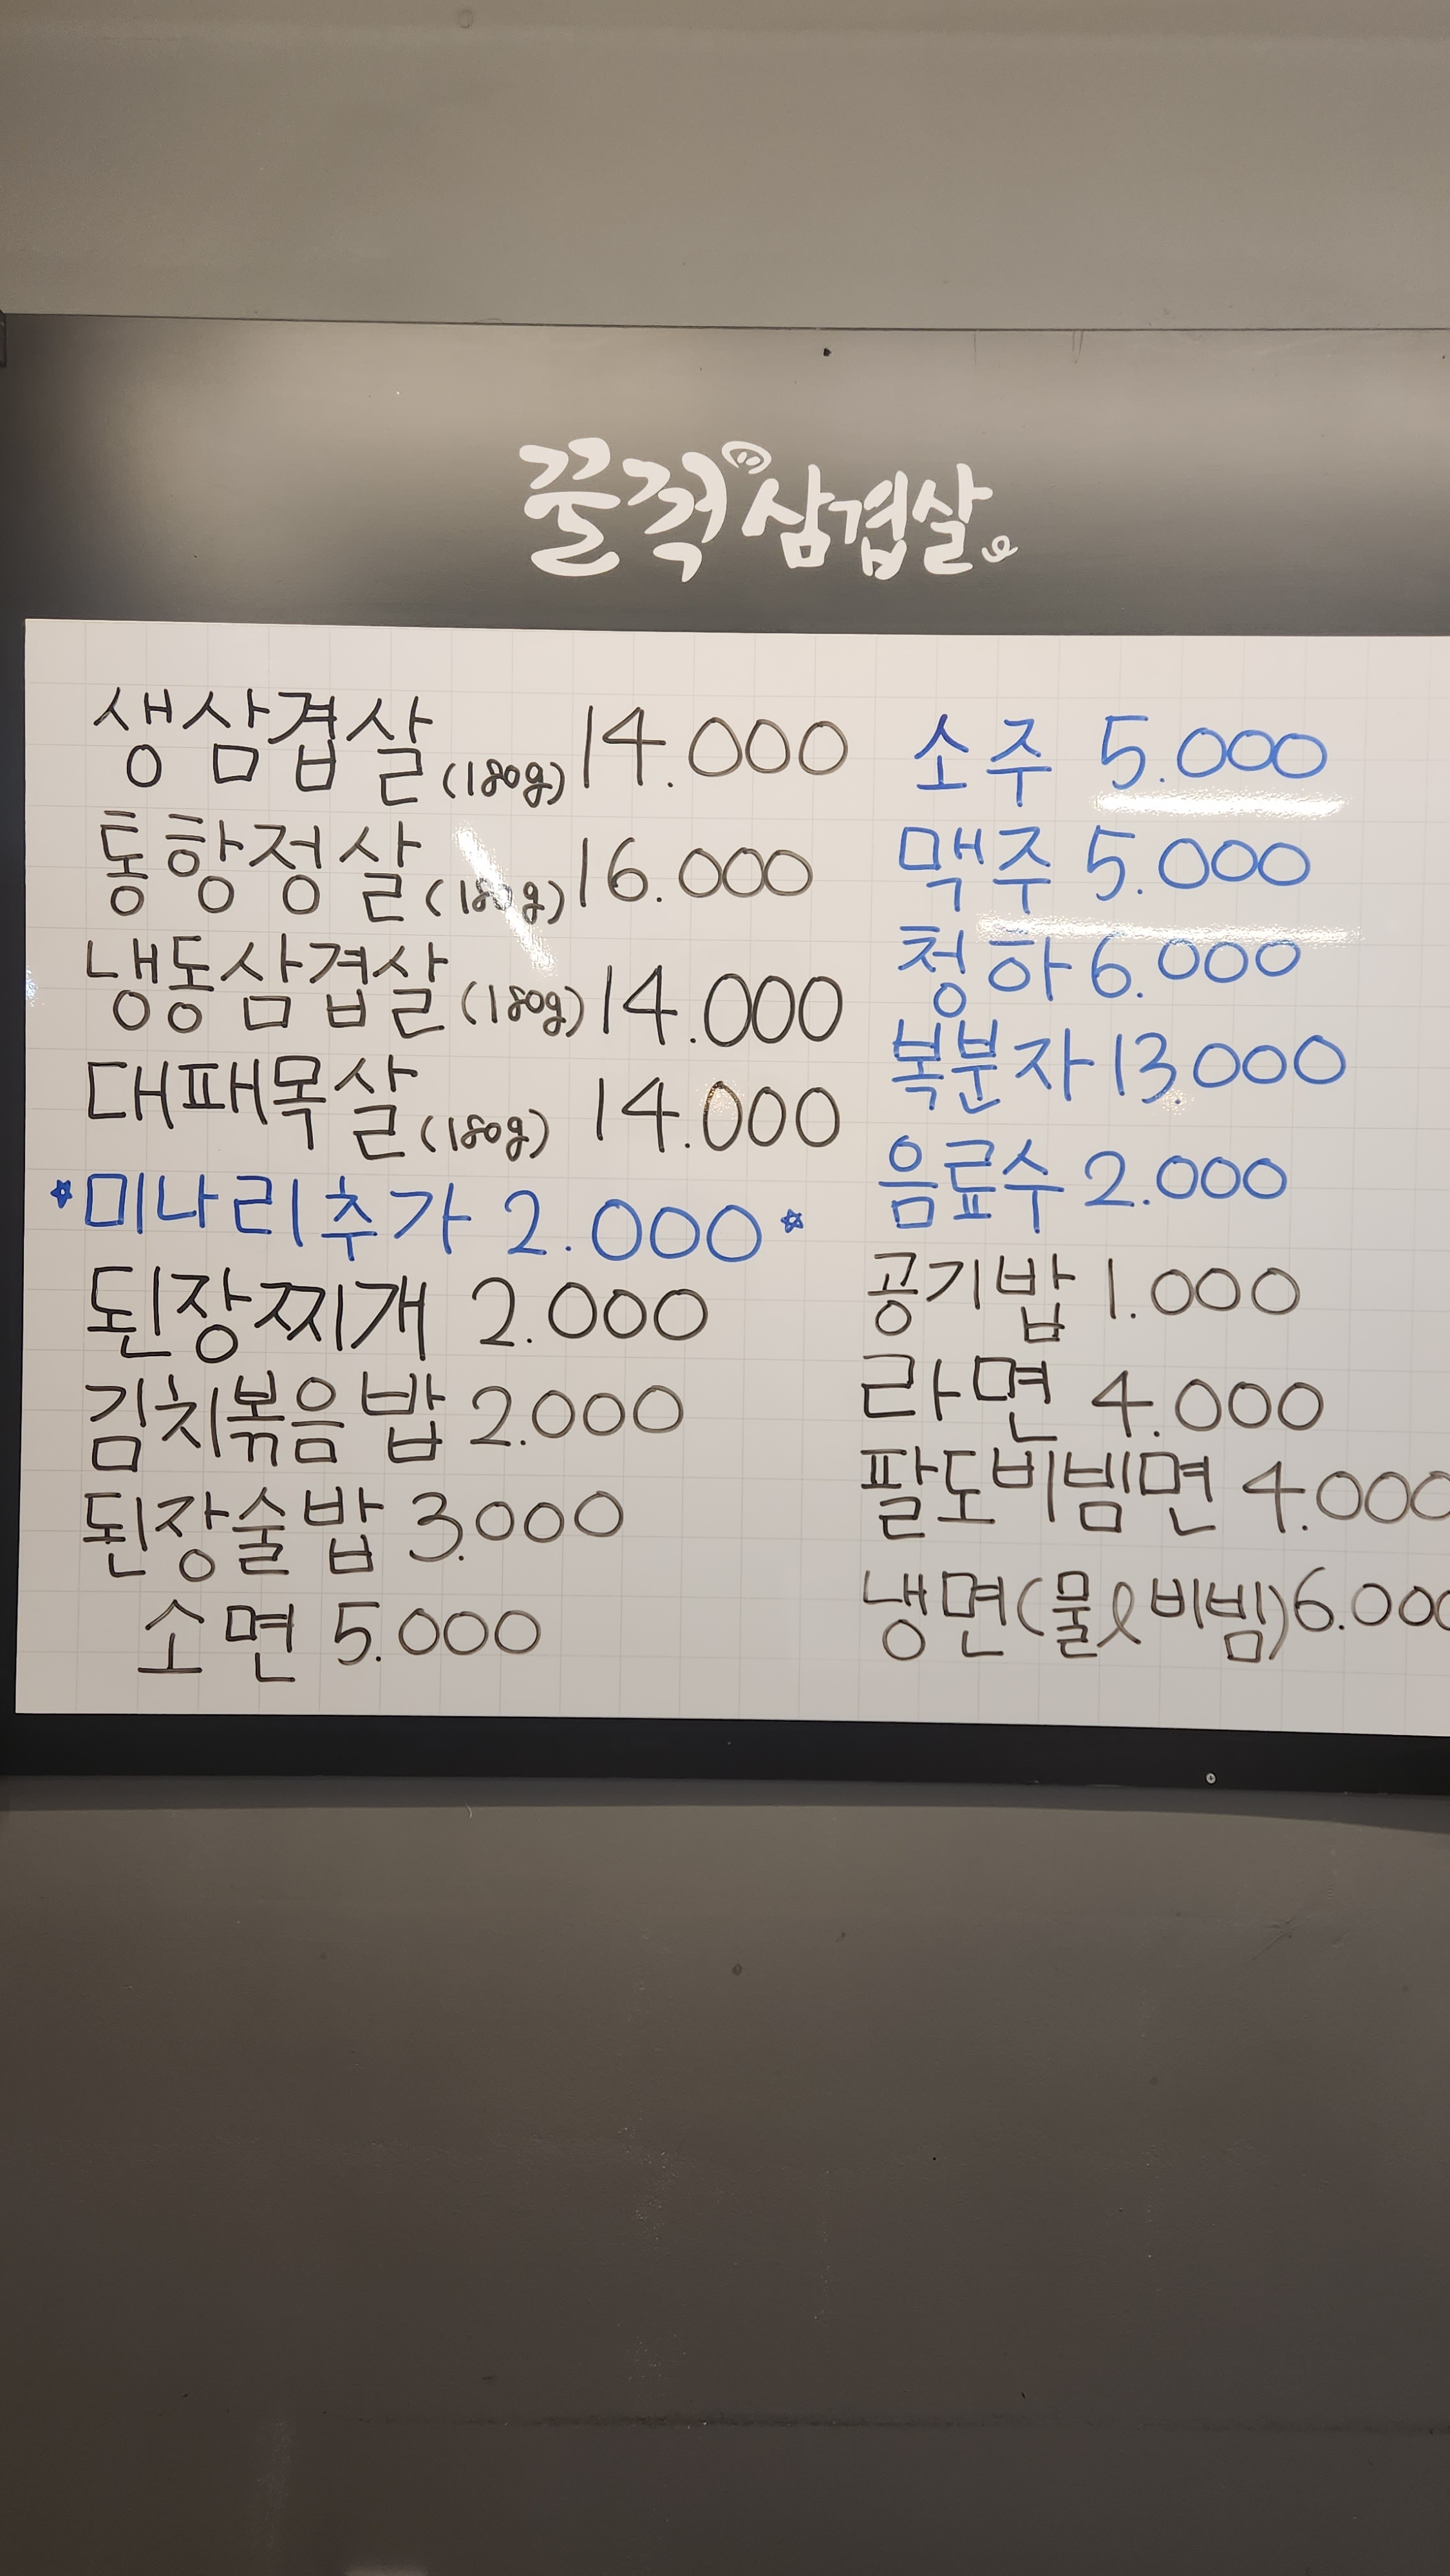 꿀꺽삼겹살
생삼겹살(180g) 14.000
통항정살(180g) 16.000
냉동삼겹살(180g) 14.000
대패목살(180g) 14.000
*미나리추가 2.000*
된장찌개 2.000
김치볶음밥 2.000
된장술밥 3.000
소면 5.000
소주 5.000
맥주 5.000
청하 6.000
복분자 13.000
음료수 2.000
공기밥 1.000
라면 4.000
팔도비빔면 4.000
냉면(물&비빔) 6.000